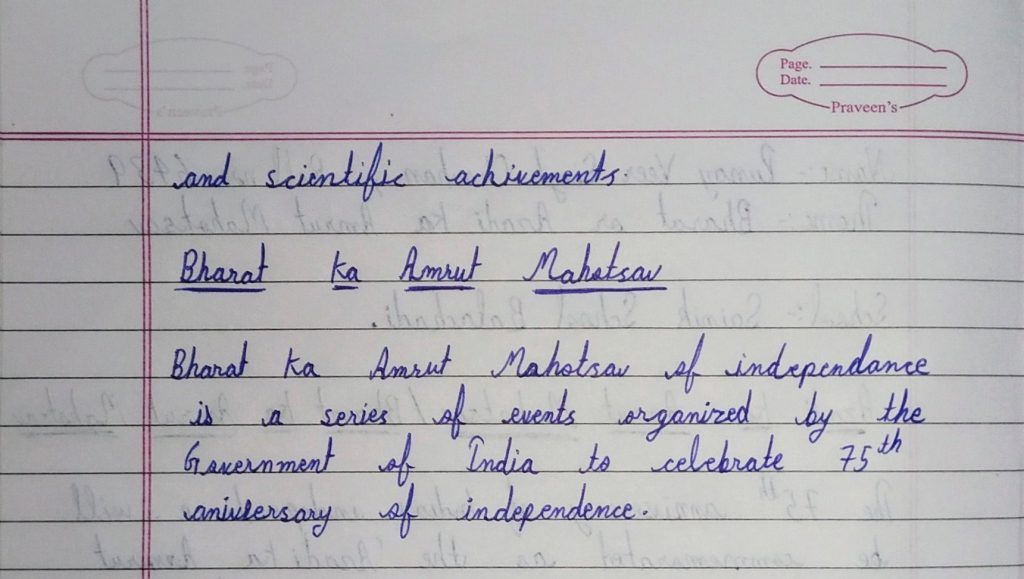 Page.
Date.
Praveen's
and scientific achivements.
Bharat ka Amrut Mahotsav
Bharat ka Amrut Mahotsav of independance
is a series of events organized by the
Government of India to celebrate 75th
aniversary of independence.